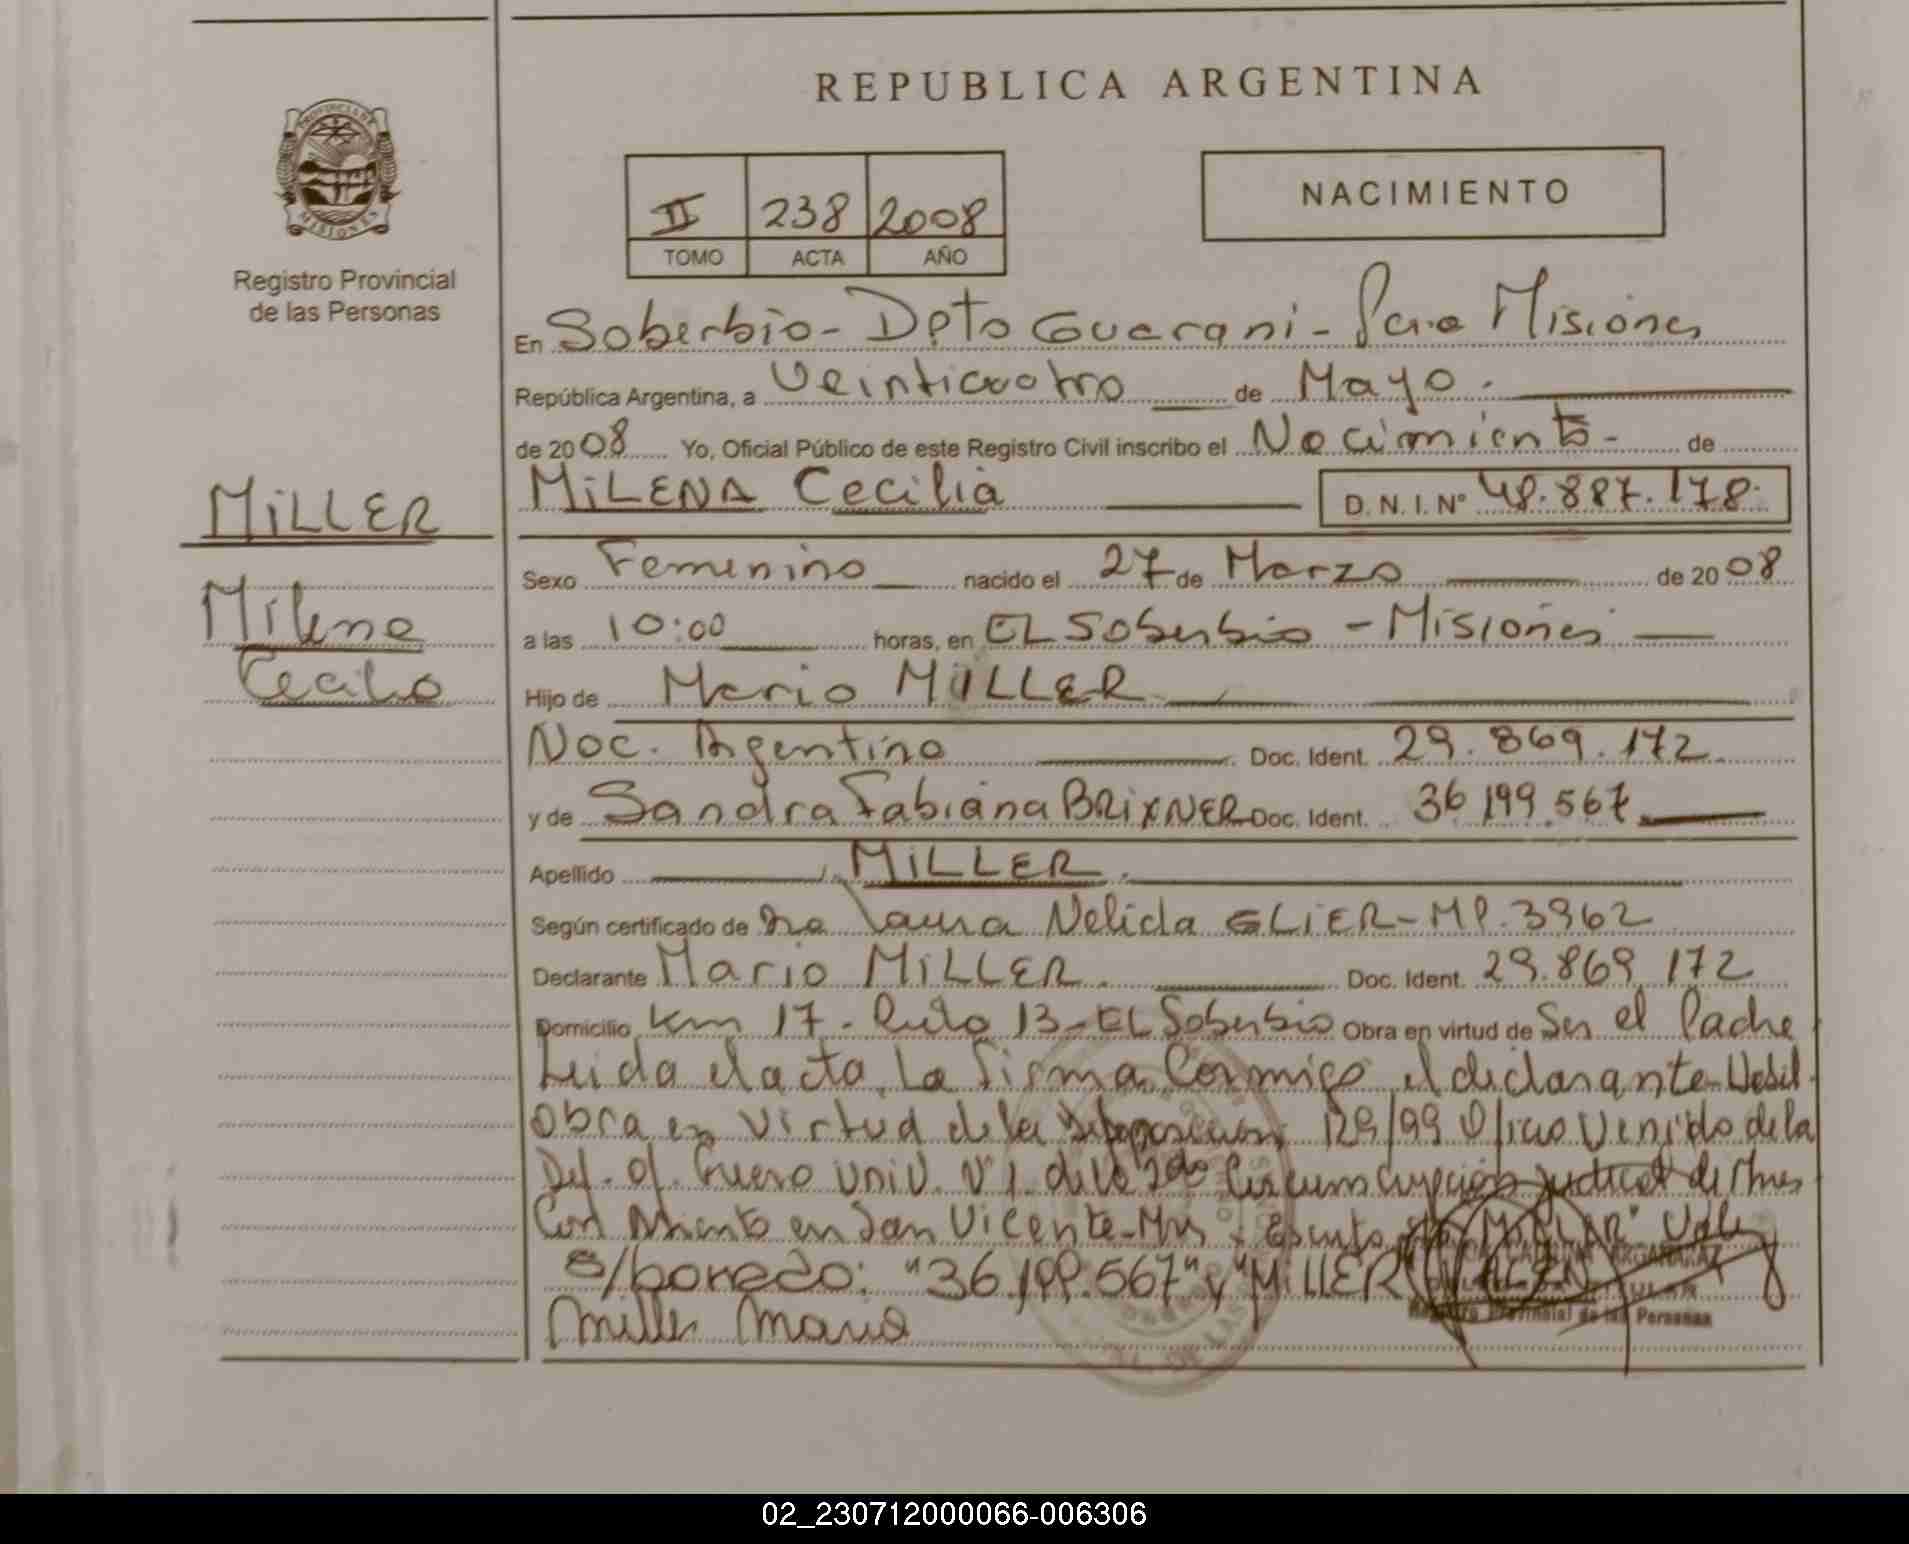 REPUBLICA ARGENTINA
PROVINCIA DE MISIONES
Registro Provincial
de las Personas
II 238 2008
TOMO ACTA AÑO
NACIMIENTO
En Soberbio - Dpto Guarani - Misiones
República Argentina, a Veinticuatro de Mayo.
de 2008 Yo, Oficial Público de este Registro Civil inscribo el Nacimiento - de
MiLLER
MiLENA Cecilia D. N. I. N° 48.887.178.
Milena
Cecilia
Sexo Femenino nacido el 27 de Marzo de 2008
a las 10:00 horas, en EL Soberbio - Misiones
Hijo de Mario MiLLER
Nac. Argentina Doc. Ident. 29.869.172
y de Sandra Fabiana BRiXNER Doc. Ident. 36 199 567
Apellido MiLLER.
Según certificado de Dra Laura Nelida GLiER - MP. 3962
Declarante Mario MiLLER. Doc. Ident. 29.869 172
Domicilio Km 17 - Ruta 13 - EL Soberbio Obra en virtud de Ser el Padre
Leida el acta La firma Conmigo el declarante
Obra en Virtud de la 129/99 Venido de la
Def. Of. Fuero Univ. N° 1. de la 2da Circunscripción judicial de Mnes
Con Asiento en San Vicente - Mns
s/borrado: "36.199.567" y "MiLLER"
Registro Provincial de las Personas
Miller Mario
02_230712000066-006306